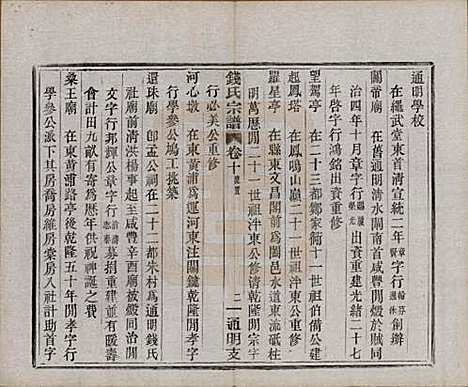 通明學校
在繼武堂東首宣統二年章字行翰芬賢林創辦
關帝廟 在舊通明清水閘南首咸豐間燬於兵同
治四年十月章字行出資重建光緒二十七
年啓字行鴻銘出資重修
望駕亭 在二十三都鄭家衖十一世祖伯備公建
起鳳塔 在鳳鳴山巔二十一世祖泮東公重修
羅星亭 在縣東文昌閣前爲闔邑水道東流砥柱
明萬歷間二十一世祖泮東公修清乾隆間宗字
行必美公重修
錢氏宗譜 卷十 二 通明支
河心墩 在東黃浦爲運河東注關鍵乾隆間孝字
行學參公塢工挑築
還珠廟 卽孟公祠在二十二都朱村爲通明錢氏
社廟前清洪楊事起至咸豐辛酉廟被燬同治間
文字行邦輝公章字行募捐重建並有徳
會計田九畝有奇爲歷年供祝神誕之費
桑王廟 在東黃浦路亭後乾隆五十年間孝字行
學參公派下其房喬房維房棠房入社計助首字